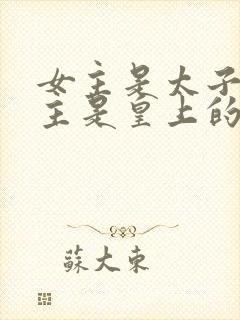 女主是太子
主是皇上的
蘇大東